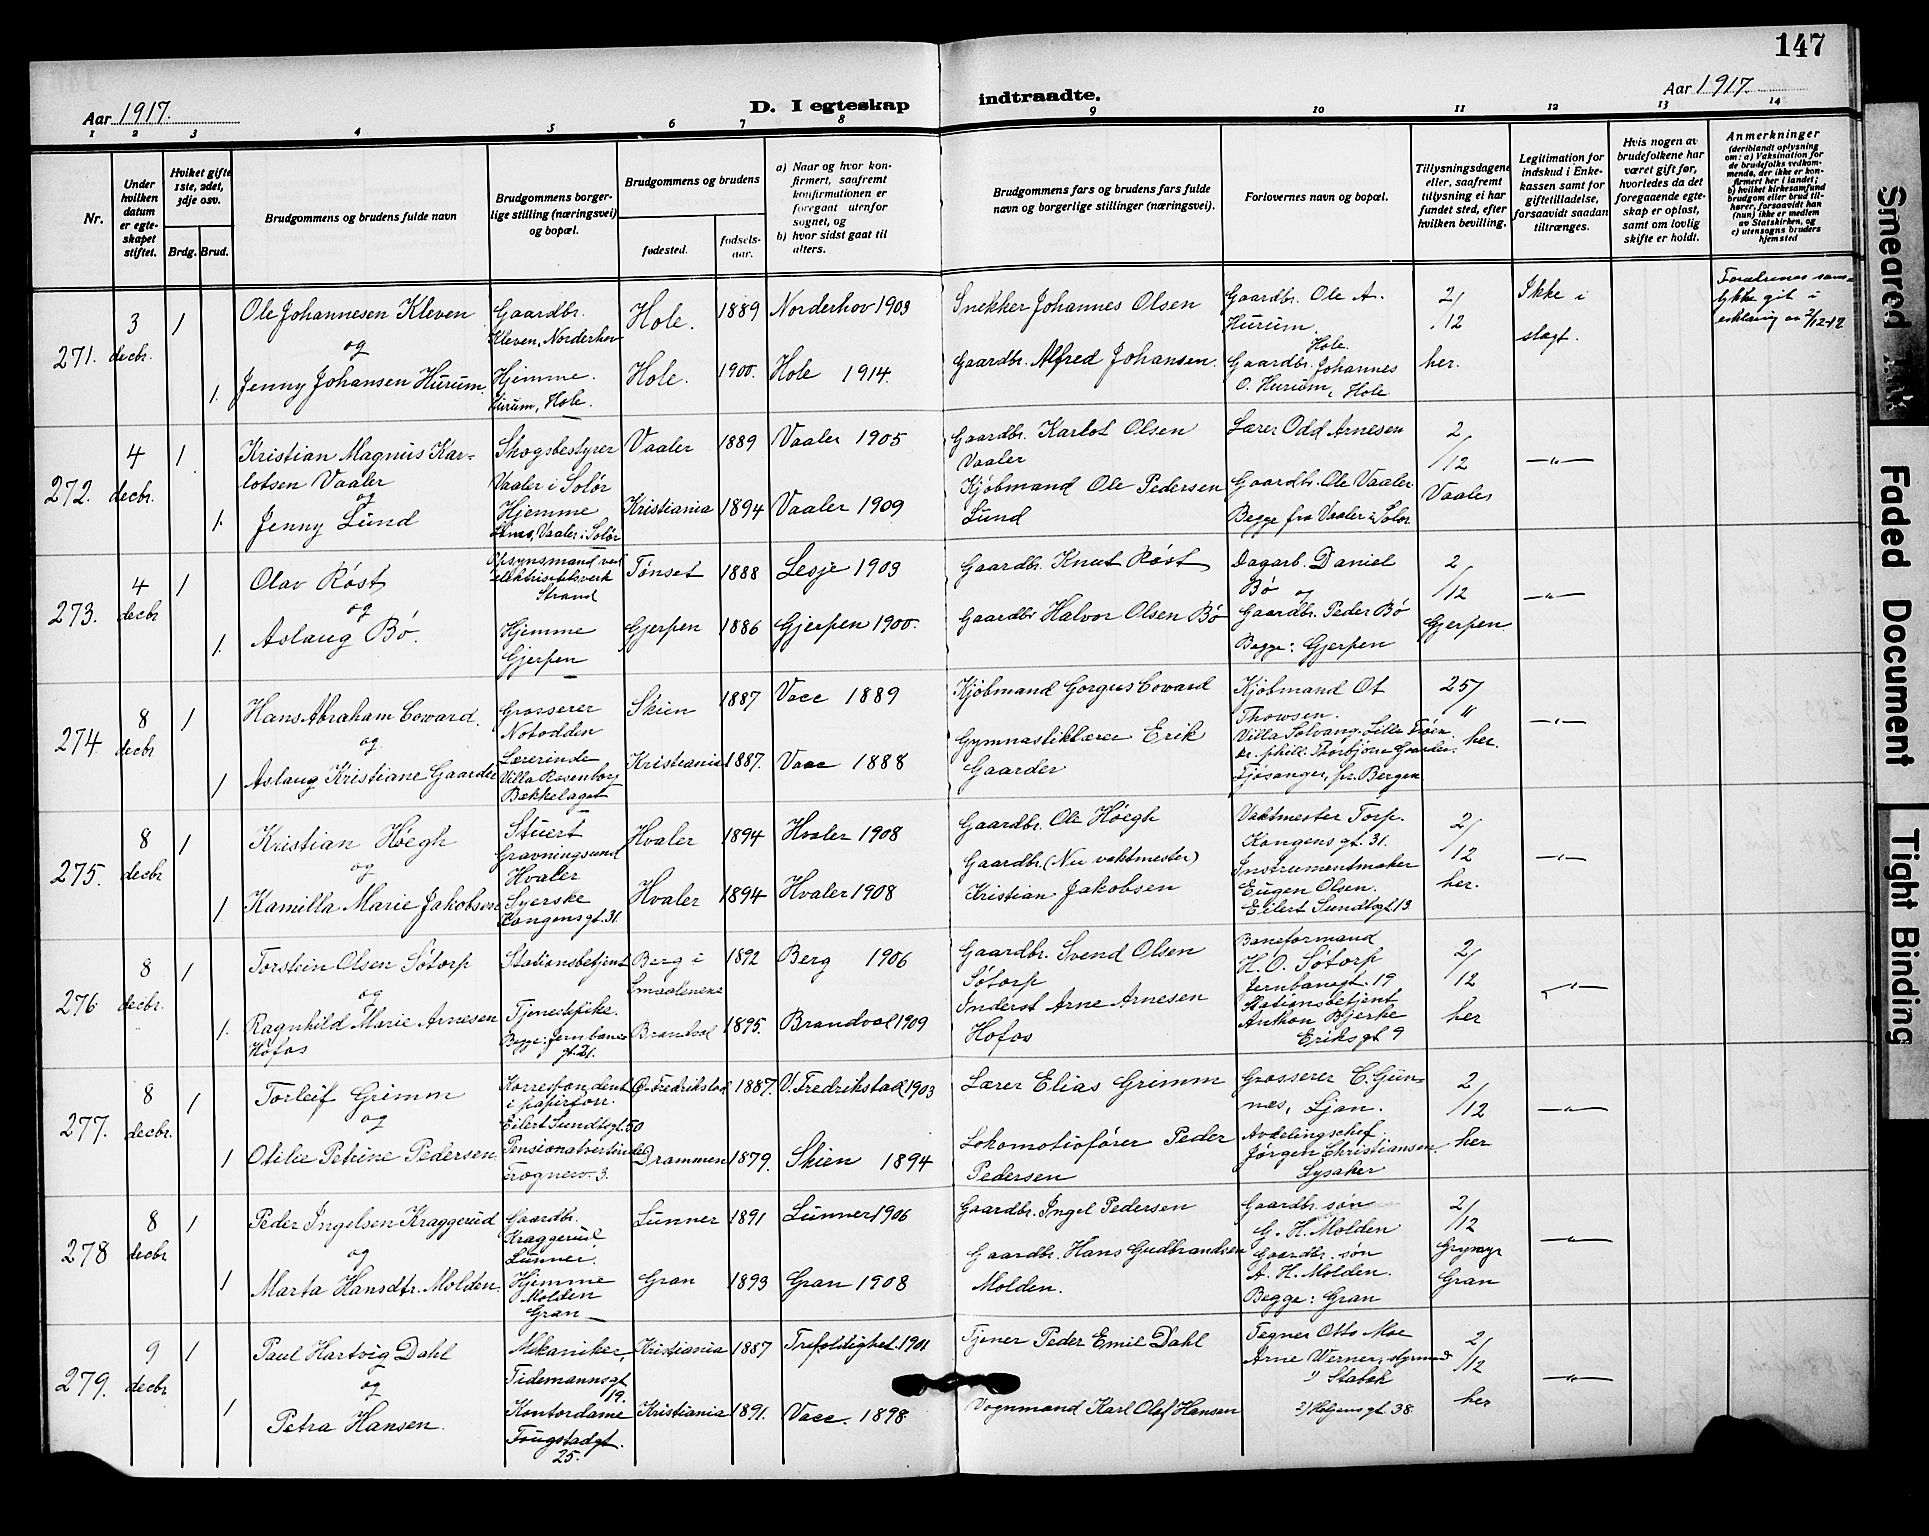 147
Aar 1917.
D. I egteskap
indtraadte.
Aar 1917.
1 2 3 4 5 6 7 8 9 10 11 12 13 14
Nr.
Under hvilken datum er egteskapet stiftet.
Hviket gifte 1ste, 2det, 3dje osv.
Brdg. Brud.
Brudgommens og brudens fulde navn
Brudgommens borgerlige stilling (næringsvei) og bopæl.
Brudgommens og brudens
fødested.
fødselsaar.
a) Naar og hvor konfirmert, saafremt konfirmationen er foregaat utenfor sognet, og
b) hvor sidst gaat til alters.
Brudgommens fars og brudens fars fulde navn og borgerlige stillinger (næringsvei).
Forlovernes navn og bopæl.
Tillysningsdagene eller, saafremt tillysning ei har fundet sted, efter hvilken bevilling.
Legitimation for indskud i Enkekassen samt for giftetilladelse, forsaavidt saadan tiltrænges.
Hvis nogen av brudefolkene har været gift før, hvorledes da det foregaaende egteskap er opløst, samt om lovlig skifte er holdt.
Anmerkninger
(deriblandt oplysning om: a) Vaksination for de brudefolks vedkommende, der ikke er konfirmert her i landet; b) hvilket kirkesamfund brudgom eller brud tilhører, forsaavidt han (hun) ikke er medlem av Statskirken, og c) utensogns bruders hjemsted
271. 3 decbr. 1 Ole Johannesen Kleven
Gaardbr. Kleven, Norderhov
Hole. 1889 Norderhov 1903
Snekker Johannes Olsen
Gaardbr. Ole A. Hurum, Hole.
2/12 her.
Ikke i slegt.
Forældrenes samtykke git i erklæring av 2/12-17
og
1. Jenny Johansen Hurum.
Hjemme. Hurum, Hole.
Hole. 1900. Hole 1914.
Gaardbr. Alfred Johansen.
Gaardbr. Johannes O. Hurum, Hole
272. 4 decbr. 1 Kristian Magnus Karlotsen Vaaler
Skogsbestyrer Vaaler i Solør
Vaaler 1889 Vaaler 1905
Gaardbr. Karlot Olsen Vaaler
Lærer Odd Arnesen
2/12 Vaaler
—"—
og
1. Jenny Lund
Hjemme
Vaaler i Solør
Kristiania 1894 Vaaler 1909
Kjøbmand Ole Pedersen Lund
Gaardbr. Ole Vaaler
Begge fra Vaaler i Solør
273. 4 decbr 1 Olav Røst
Opsynsmand ved elektricitetsverk Strand
Tønset 1888 Lesje 1903
Gaardbr. Knut Røst
Dagarb. Daniel Bø og
2/12 Gjerpen.
—"—
og
1. Aslaug Bø.
Hjemme Gjerpen
Gjerpen 1886 Gjerpen 1900.
Gaardbr Halvor Olsen Bø
Gaardbr. Peder Bø
Begge: Gjerpen
274 8 decbr 1 Hans Abraham Coward.
Grosserer Notodden
Skien 1887 Vacc 1889
Kjøbmand Gorgus Coward
Kjøbmand Ot Thowsen.
25/11 her.
—"—
og
1 Aslaug Kristiane Gaarder
Lærerinde Villa Rosenborg Bækkelaget
Kristiania 1887. Vacc 1888
Gymnastiklærer Erik Gaarder
Villa Solvang. Lille Frøen
Thorbjørn Gaarder.
Fjøsanger, pr. Bergen
275. 8 decbr 1 Kristian Høegh
Stuert Gravningsund Hvaler
Hvaler 1894 Hvaler 1908
Gaardbr. Ole Høegh
Vaktmester Torp. Kongens gt. 31.
2/12 her.
—"—
og
1 Kamilla Marie Jakobsen
Syerske Kongensgt. 31.
Hvaler 1894 Hvaler 1908
Gaardbr. (Nu vaktmester) Kristian Jakobsen
Instrumentmaker Eugen Olsen. Eilert Sundtsgt. 13.
276 8 decbr. 1 Torstein Olsen Søtorp
Stationsbetjent
Berg i Smaalenene 1892 Berg 1906
Gaardbr. Svend Olsen Søtorp
Baneformand H. O. Søtorp Jernbanegt. 19
2/12 her
—"—
og
1. Ragnhild Marie Arnesen Hofos
Tjenestepike. Begge: Jernbanegt. 21.
Brandval 1895. Brandval 1909
Inderst Arne Arnesen Hofos
Stationsbetjent Anthon Bjerke Eriksgt 9
277. 8 decbr. 1 Torleif Grimm
Korrespondent i papirforr. Eilert Sundtsgt. 50
Ø. Fredrikstad 1887. V. Fredrikstad 1903
Lærer Elias Grimm
Grosserer C. Gunnæs, Ljan.
2/12 her
—"—
og
1 Otilie Petrine Pedersen
Pensionatvertinde Frognerv. 3.
Drammen 1879. Skien 1894
Lokomotivfører Peder Pedersen
Avdelingschef Jørgen Christiansen. Lysaker
278 8 decbr 1 Peder Ingelsen Kraggerud
Gaardbr. Kraggerud, Lunner.
Lunner 1891 Lunner 1906
Gaardbr. Ingel Pedersen
Gaardbr. søn G. H. Molden
2/12 Grymyr Gran
—"—
og
1 Marta Hansdtr. Molden.
Hjemme Molden Gran
Gran 1893 Gran 1908
Gaardbr. Hans Gudbrandsen Molden.
Gaardbr. søn A. H. Molden.
Begge: Gran
279. 9 decbr 1 Paul Hartvig Dahl
Mekaniker, Tidemannsgt 19.
Kristiania 1887 Trefoldighet 1901
Tjener Peder Emil Dahl
Tegner Otto Moe
Arne Werner, styrmand
1) Stabæk
2/12 her
—"—
og
1 Petra Hansen.
Kontordame Fougstadgt. 25.
Kristiania 1891. Vacc. 1898
Vognmand Karl Olaf Hansen
2) Helgensgt 38.
Smeared Ink
Faded Document
Tight Binding